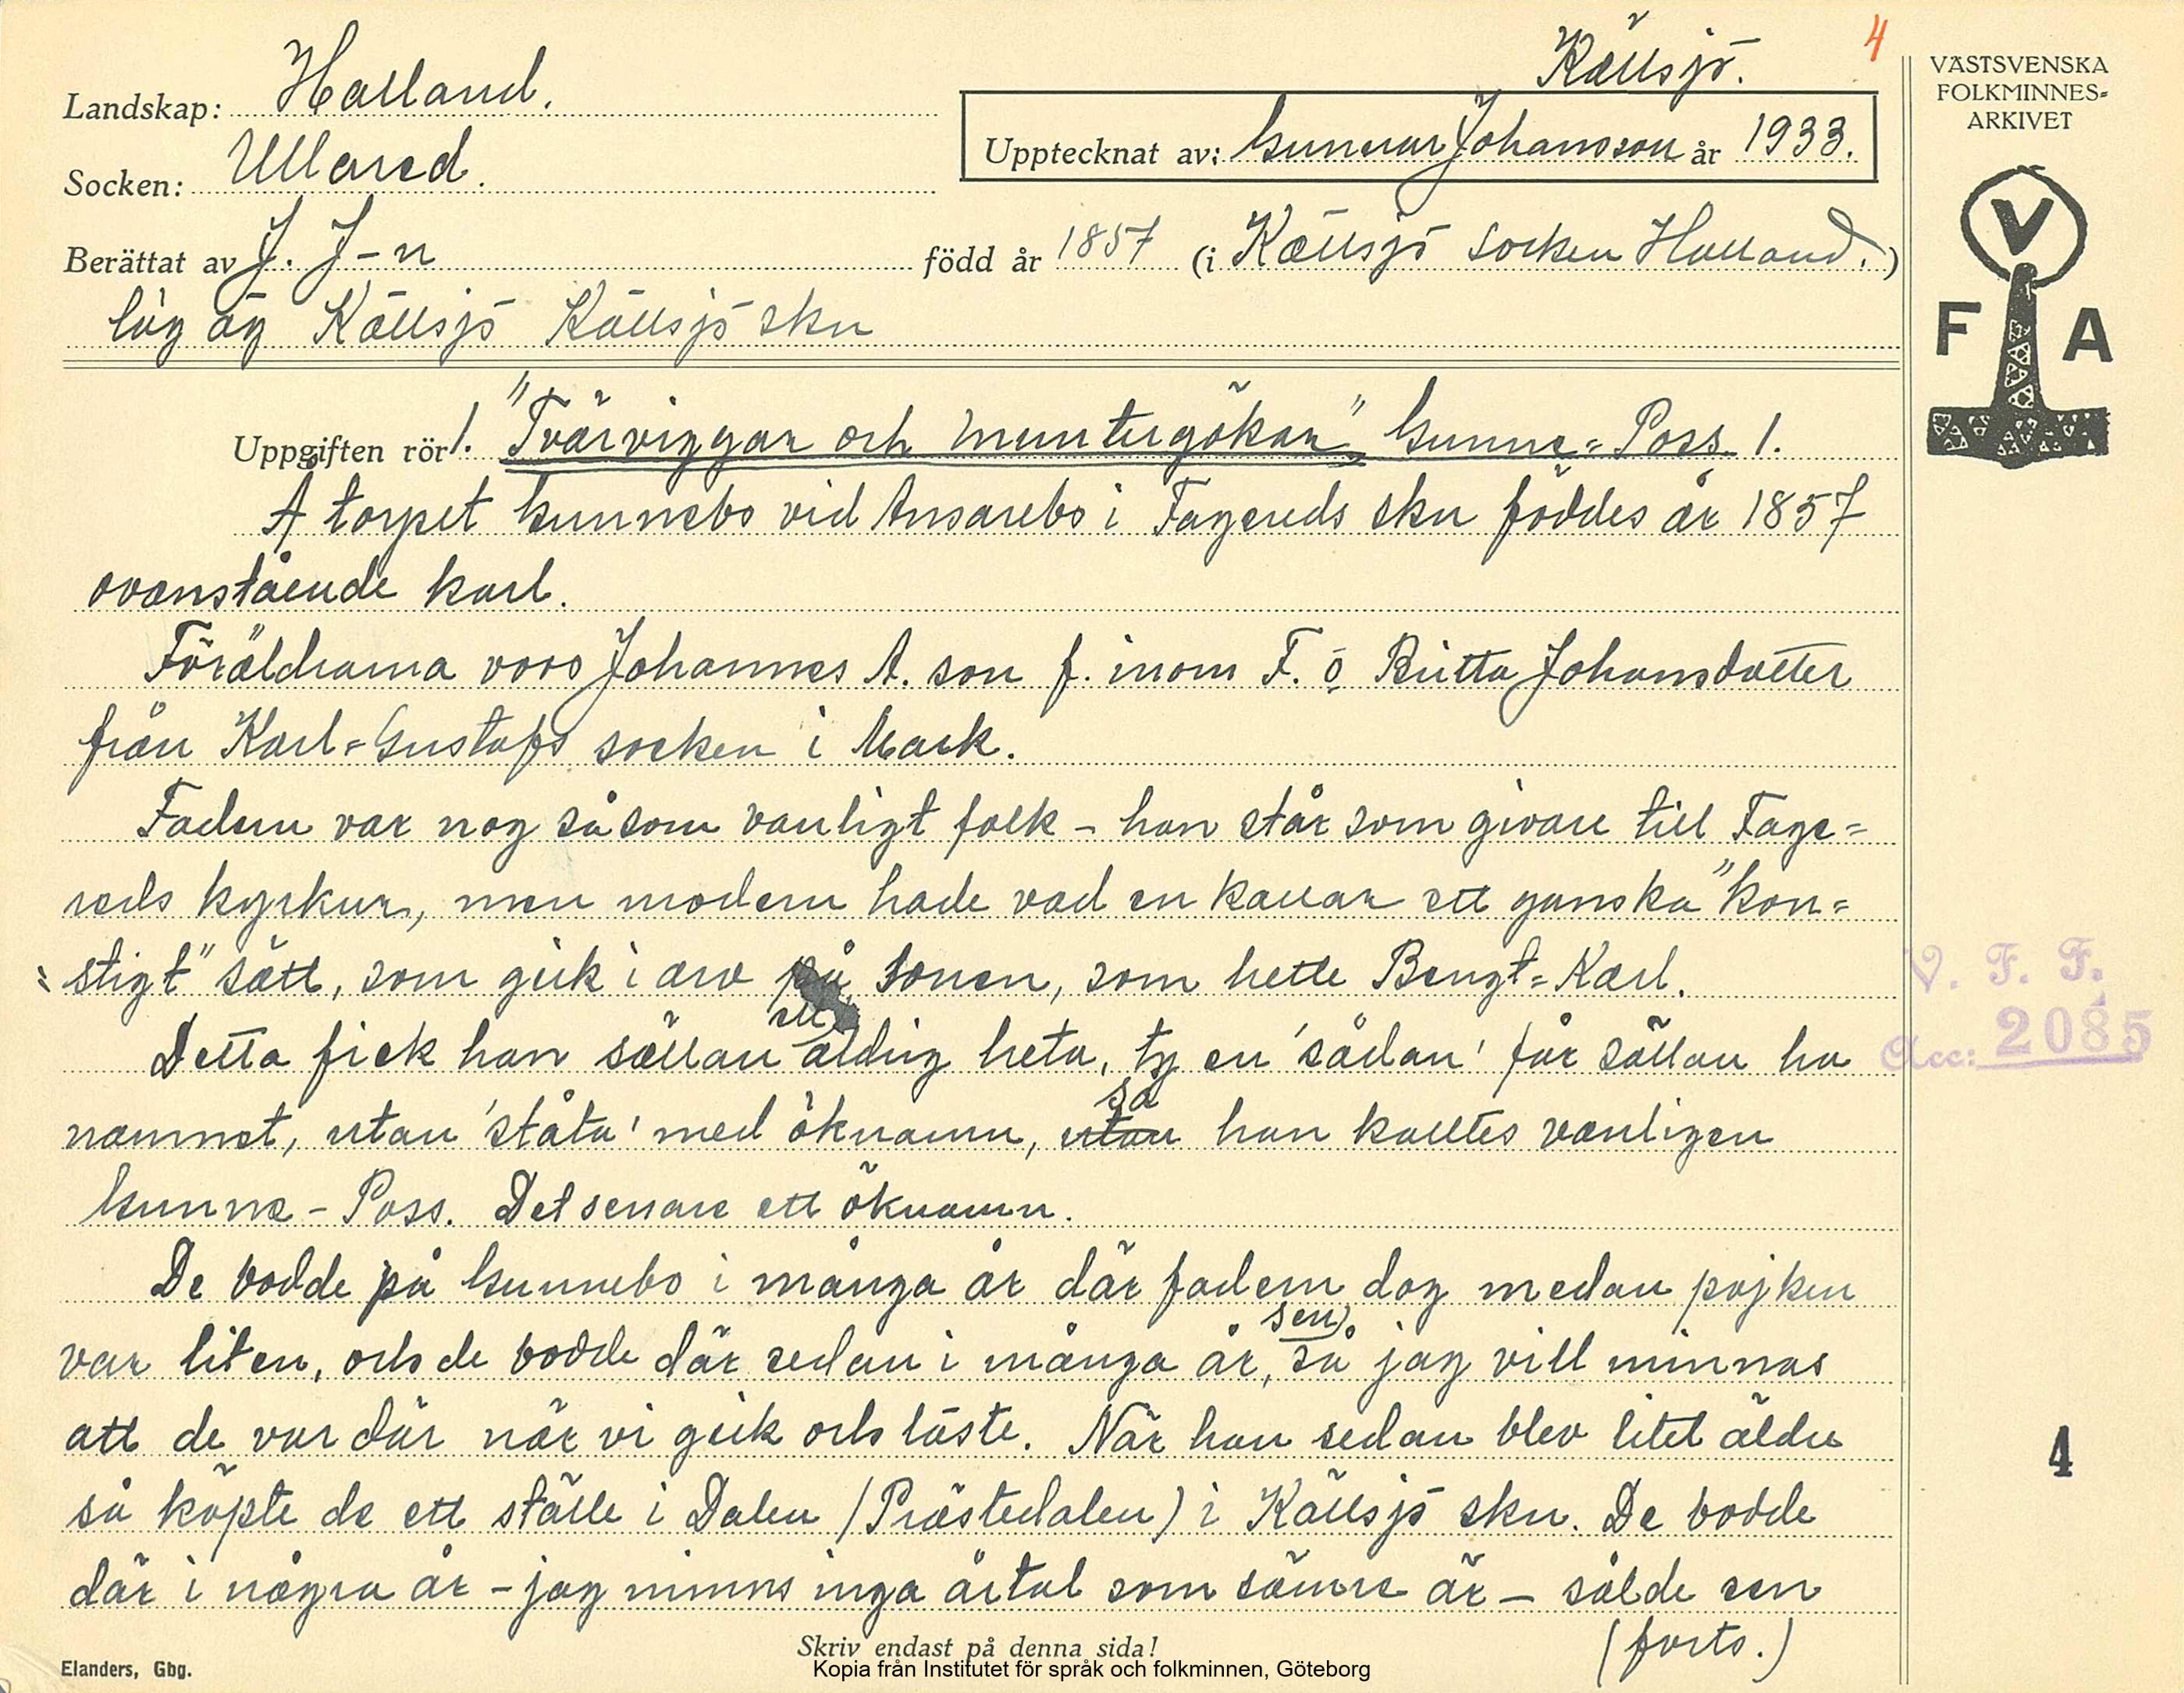 Källsjö. 4
Landskap: Halland.
Socken: Ullared.
Upptecknat av: Gunnar Johansson år 1933.
Berättat av J. J-n född år 1857 (i Källsjö socken Halland.)
läg äg Källsjö Källsjö skn
VÄSTSVENSKA
FOLKMINNES-
ARKIVET
V
F A
Uppgiften rör 1. "Tvärviggar och muntergökar" Gunne-Poss 1.
Å torpet Gunnebo vid Ansarebo i Fagereds skn föddes år 1857
ovanstående karl.
Föräldrarna voro Johannes A. son f. inom F. o Britta Johansdotter
från Karl-Gustafs socken i Mark.
Fadern var nog såsom vanligt folk - han står som givare till Fage-
reds kyrkur, men modern hade vad en kallar ett ganska "kon-
stigt" sätt, som gick i arv på sonen, som hette Bengt-Karl.
Detta fick han sällan ell aldrig heta, ty en 'sådan' får sällan ha
namnet, utan 'ståta' med öknamn, utan så han kalltes vanligen
Gunne-Poss. Det senare ett öknamn.
De bodde på Gunnebo i många år där fadern dog medan pojken
var liten, och de bodde där sedan i många år, sen så jag vill minnas
att de var där när vi gick och läste. När han sedan blev litet äldre
så köpte de ett ställe i Dalen (Prästedalen) i Källsjö skn. De bodde
där i några år - jag minns inga årtal som sämre är - sålde sen
(forts.)
V. F. F.
Acc: 2085
4
Skriv endast på denna sida!
Elanders, Gbg.
Kopia från Institutet för språk och folkminnen, Göteborg